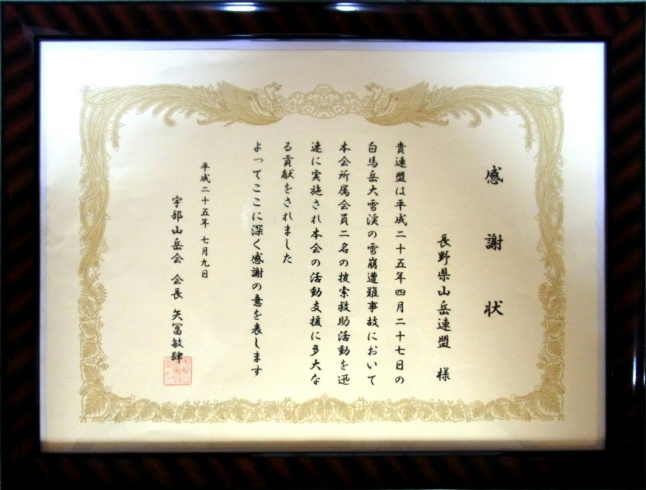 感謝状
長野県山岳連盟 様
貴連盟は平成二十五年四月二十七日の
白馬岳大雪渓の雪崩遭難事故において
本会所属会員二名の捜索救助活動を迅
速に実施され本会の活動支援に多大な
る貢献をされました
よってここに深く感謝の意を表します
平成二十五年 七月九日
宇部山岳会 会長 矢冨敏肆